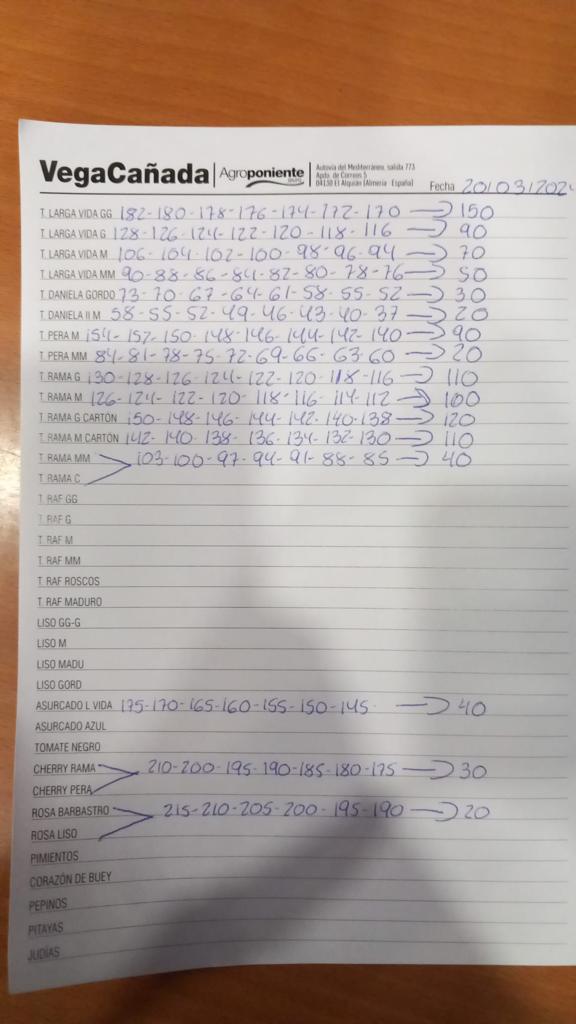 VegaCañada | Agroponiente
Autovía del Mediterráneo, salida 773
Apdo. de Correos 5
04130 El Alquián (Almería - España)
Fecha 20/03/202
T. LARGA VIDA GG 182-180-178-176-174-172-170 → 150
T. LARGA VIDA G 128-126-124-122-120-118-116 → 90
T. LARGA VIDA M 106-104-102-100-98-96-94 → 70
T. LARGA VIDA MM 90-88-86-84-82-80-78-76 → 50
T. DANIELA GORDO 73-70-67-64-61-58-55-52 → 30
T. DANIELA II M 58-55-52-49-46-43-40-37 → 20
T. PERA M 154-152-150-148-146-144-142-140 → 90
T. PERA MM 84-81-78-75-72-69-66-63-60 → 20
T. RAMA G 130-128-126-124-122-120-118-116 → 110
T. RAMA M 126-124-122-120-118-116-114-112 → 100
T. RAMA G CARTÓN 150-148-146-144-142-140-138 → 120
T. RAMA M CARTÓN 142-140-138-136-134-132-130 → 110
T. RAMA MM 103-100-97-94-91-88-85 → 40
T. RAMA C
T. RAF GG
T. RAF G
T. RAF M
T. RAF MM
T. RAF ROSCOS
T. RAF MADURO
LISO GG-G
LISO M
LISO MADU
LISO GORD
ASURCADO L VIDA 175-170-165-160-155-150-145 → 40
ASURCADO AZUL
TOMATE NEGRO
CHERRY RAMA 210-200-195-190-185-180-175 → 30
CHERRY PERA
ROSA BARBASTRO 215-210-205-200-195-190 → 20
ROSA LISO
PIMIENTOS
CORAZÓN DE BUEY
PEPINOS
PITAYAS
JUDÍAS